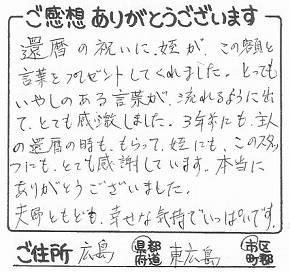 ご感想ありがとうございます
還暦の祝いに、姪が、この額と
言葉をプレゼントしてくれました。とっても
いやしのある言葉が、流れるように出
て、とても感激しました。3年後にも、主人
の還暦の時も、もらって、姪にも、このスタッ
フにも、とても感謝しています。本当に
ありがとうございました。
夫婦ともども、幸せな気持でいっぱいです。
ご住所 広島 県都府道 東広島 市区町郡